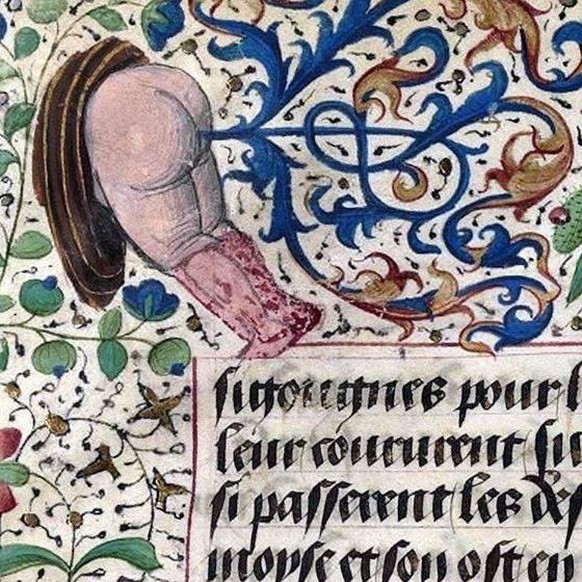 pour l
leur coururent su
si passerent les des
moyse et son ost en